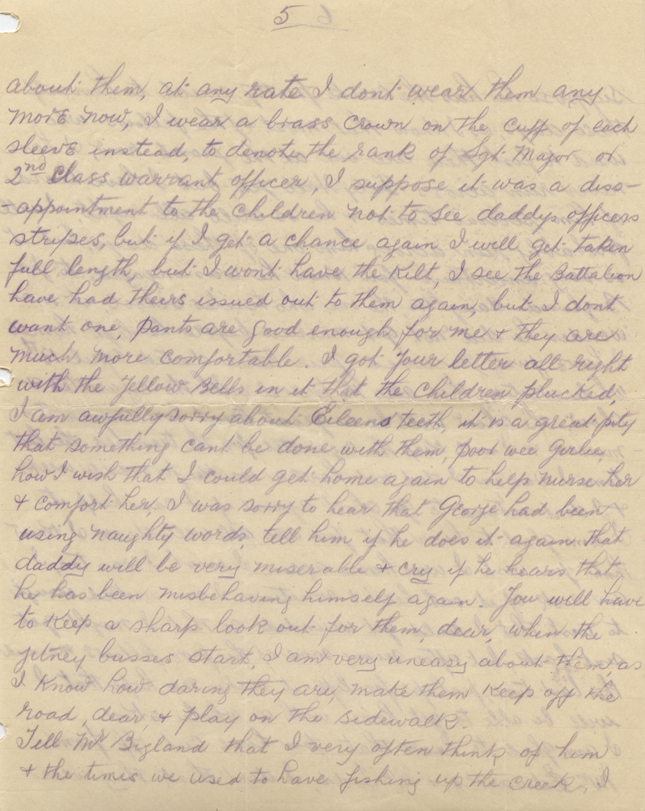 5
about them, at any rate I dont wear them any
more now, I wear a brass crown on the cuff of each
sleeve instead, to denote the rank of Sgt Major or
2nd Class warrant officer, I suppose it was a diss-
-appointment to the children not to see daddys officers
stripes, but if I get a chance again I will get taken
full length, but I wont have the Kilt, I see the Battalion
have had theirs issued out to them again, but I dont
want one, pants are good enough for me + they are
much more comfortable. I got your letter all right
with the Yellow Bells in it that the children plucked,
I am awfully sorry about Eileens teeth, it is a great pity
that something cant be done with them, poor wee Girlie,
how I wish that I could get home again to help nurse her
+ comfort her, I was sorry to hear that George had been
using naughty words, tell him if he does it again that
daddy will be very miserable + cry if he hears that
he has been misbehaving himself again. You will have
to keep a sharp look out for them, dear, when the
jitney busses start, I am very uneasy about them, as
I know how daring they are, make them keep off the
road, dear, + play on the sidewalk.
Tell Mr Bigland that I very often think of him
+ the times we used to have fishing up the creek, I